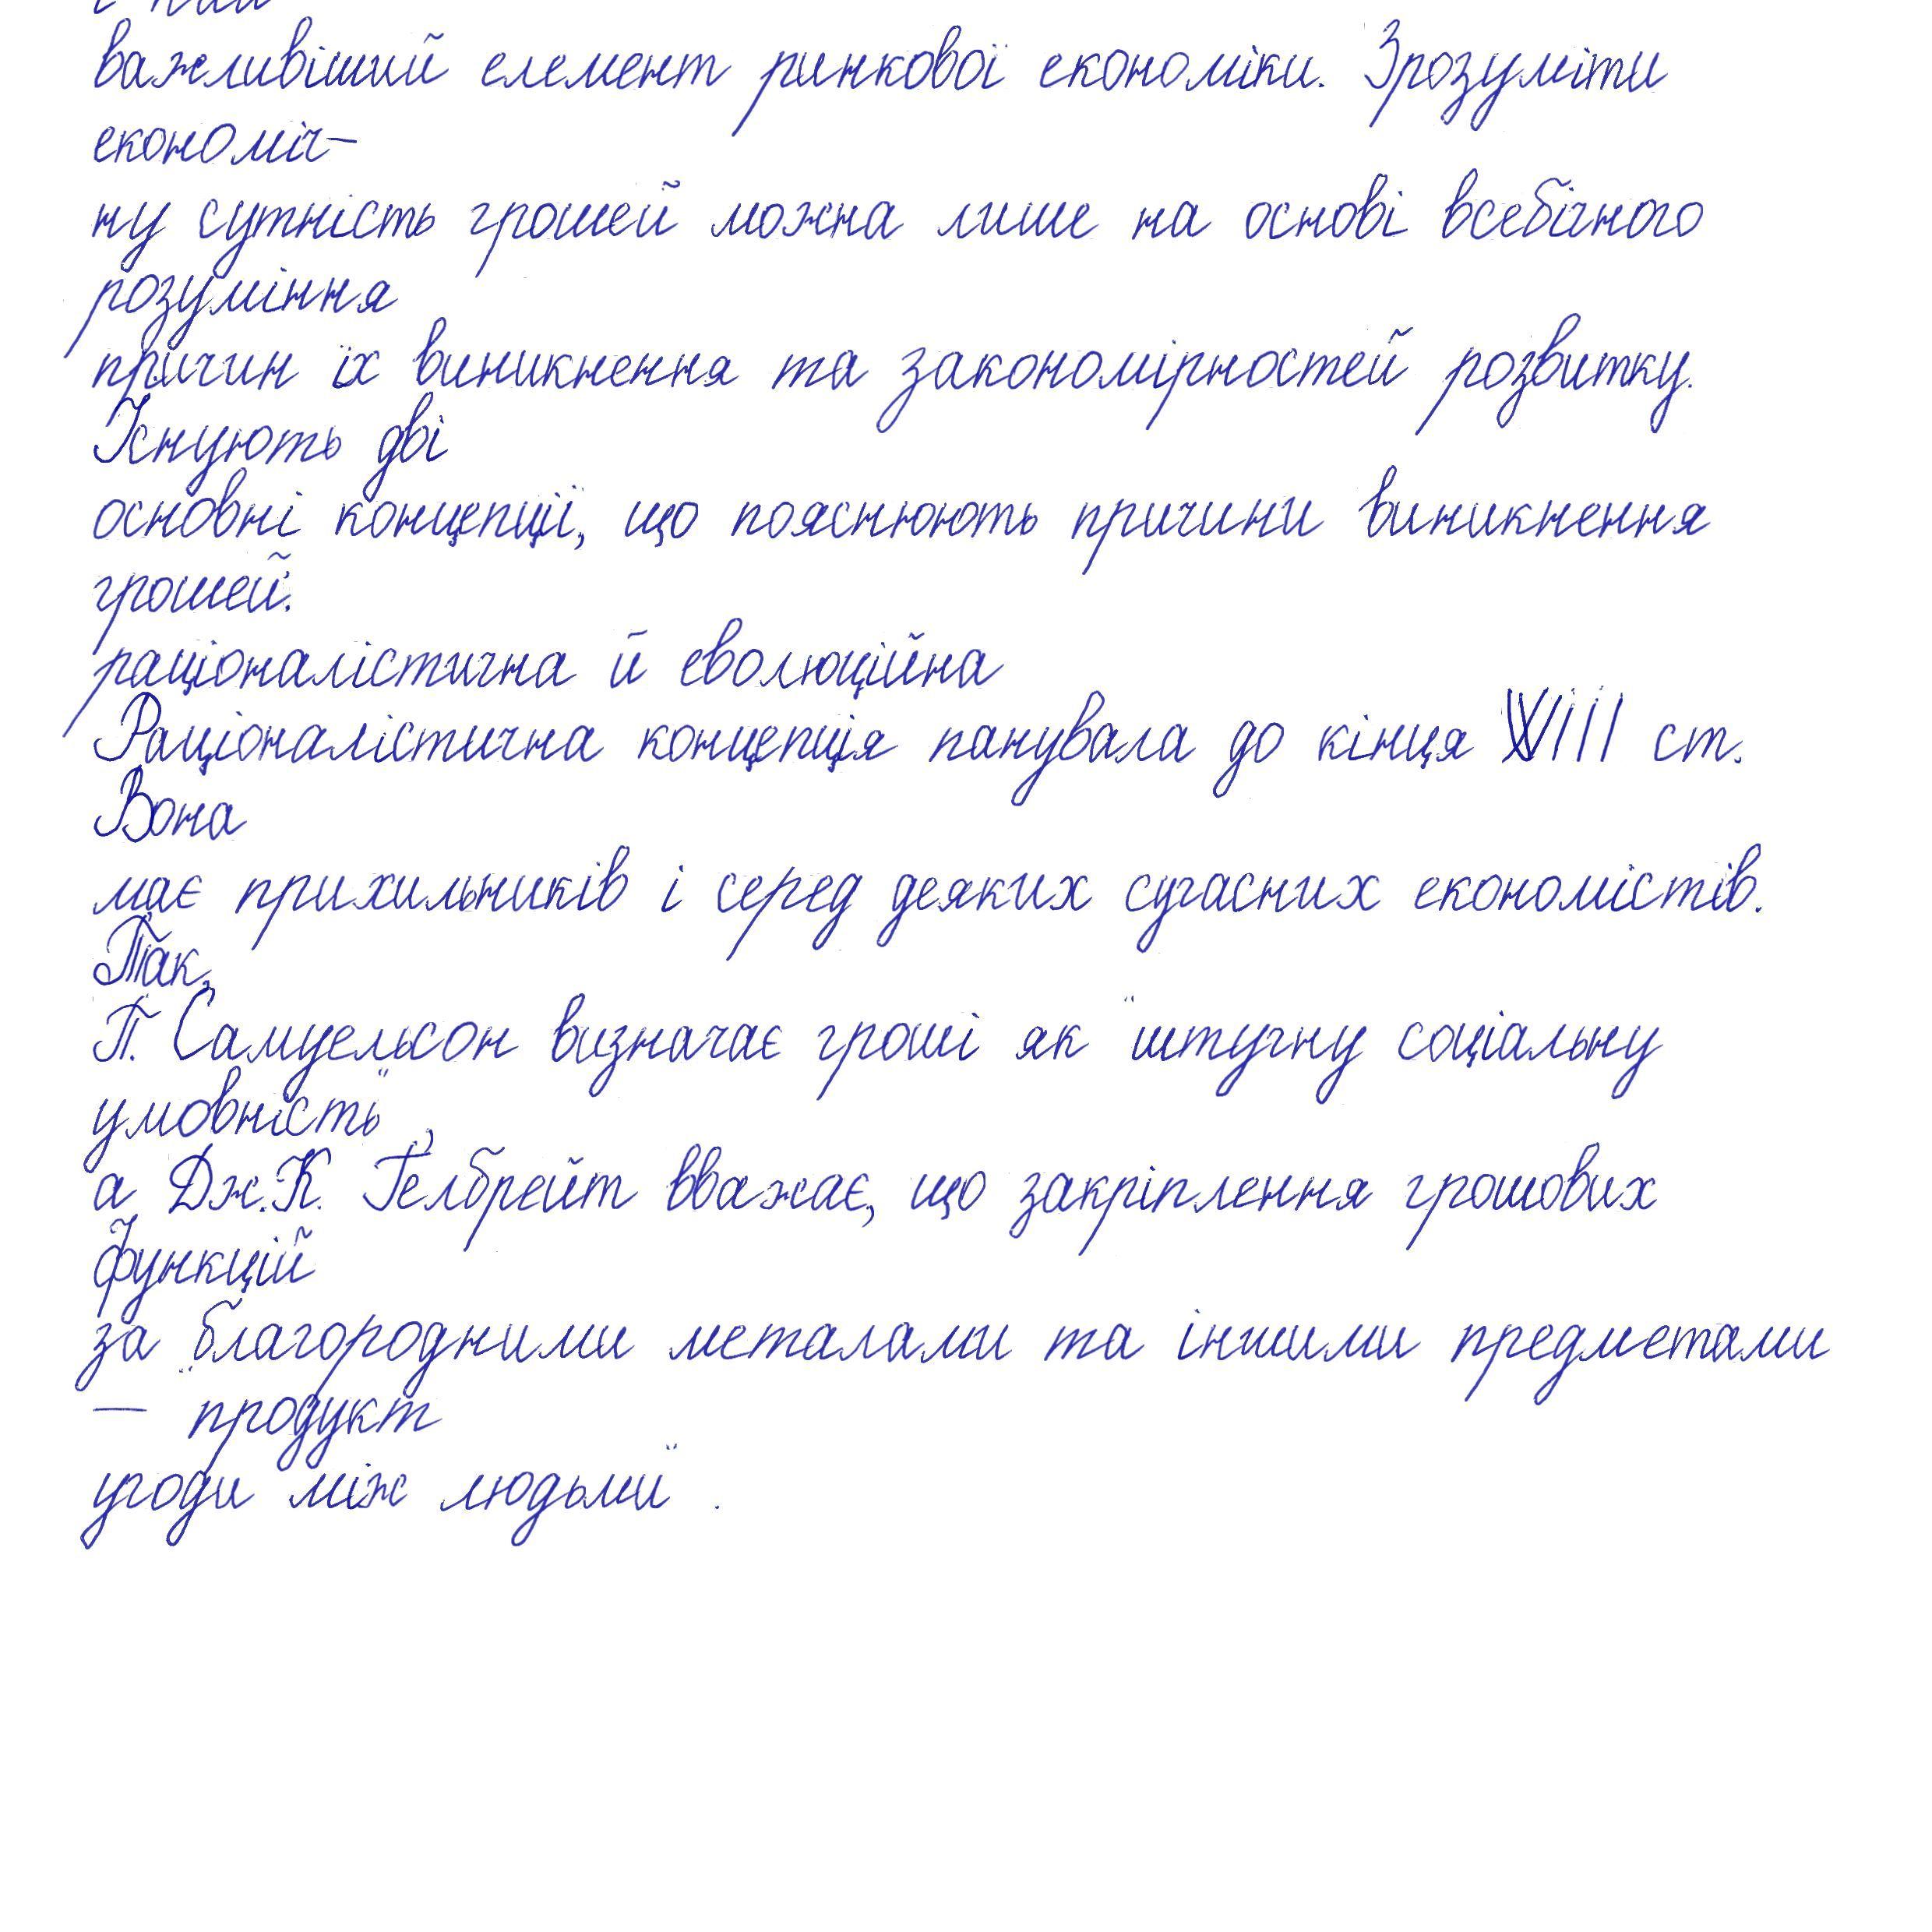 важливіший елемент ринкової економіки. Зрозуміти
економіч-
ну сутність грошей можна лише на основі всебічного
розуміння
причин їх виникнення та закономірностей розвитку.
Існують дві
основні концепції, що пояснюють причини виникнення
грошей:
раціоналістична й еволюційна
Раціоналістична концепція панувала до кінця XVIII ст.
Вона
має прихильників і серед деяких сучасних економістів.
Так,
П. Самуельсон визначає гроші як "штучну соціальну
умовність",
а Дж.К. Гелбрейт вважає, що закріплення грошових
функцій
за „благородними металами та іншими предметами
— продукт
угоди між людьми".